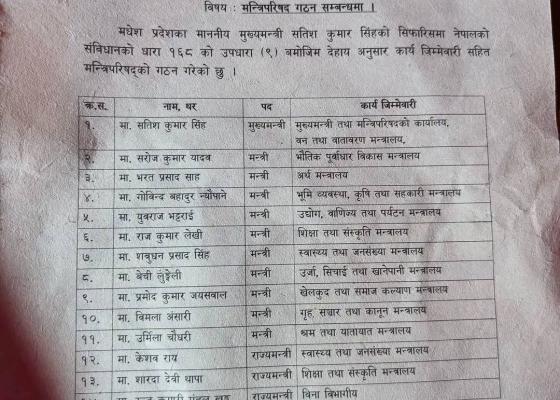 विषय : मन्त्रिपरिषद गठन सम्बन्धमा ।
मधेश प्रदेशका माननीय मुख्यमन्त्री सतिश कुमार सिंहको सिफारिसमा नेपालको
संविधानको धारा १६८ को उपधारा (९) बमोजिम देहाय अनुसार कार्य जिम्मेवारी सहित
मन्त्रिपरिषद्को गठन गरेको छु ।
क्र.स. नाम, थर पद कार्य जिम्मेवारी
१. मा. सतिश कुमार सिंह मुख्यमन्त्री मुख्यमन्त्री तथा मन्त्रिपरिषदको कार्यालय,
वन तथा वातावरण मन्त्रालय,
२. मा. सरोज कुमार यादव मन्त्री भौतिक पूर्वाधार विकास मन्त्रालय
३. मा. भरत प्रसाद साह मन्त्री अर्थ मन्त्रालय
४. मा. गोविन्द बहादुर न्यौपाने मन्त्री भूमि व्यवस्था, कृषि तथा सहकारी मन्त्रालय
५. मा. युवराज भट्टराई मन्त्री उद्योग, वाणिज्य तथा पर्यटन मन्त्रालय
६. मा. राज कुमार लेखी मन्त्री शिक्षा तथा संस्कृति मन्त्रालय
७. मा. शत्रुधन प्रसाद सिंह मन्त्री स्वास्थ्य तथा जनसंख्या मन्त्रालय
८. मा. बेची लुङ्गेली मन्त्री उर्जा, सिचाई तथा खानेपानी मन्त्रालय
९. मा. प्रमोद कुमार जयसवाल मन्त्री खेलकुद तथा समाज कल्याण मन्त्रालय
१०. मा. विमला अंसारी मन्त्री गृह, सञ्चार तथा कानून मन्त्रालय
११. मा. उर्मिला चौधरी मन्त्री श्रम तथा यातायात मन्त्रालय
१२. मा. केशव राय राज्यमन्त्री स्वास्थ्य तथा जनसंख्या मन्त्रालय
१३. मा. शारदा देवी थापा राज्यमन्त्री शिक्षा तथा संस्कृति मन्त्रालय
राज्यमन्त्री विना विभागीय